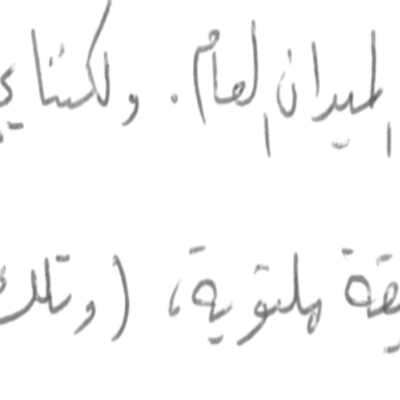 الميدان العام. ولكننا
يقة ملتوية، (وتلك